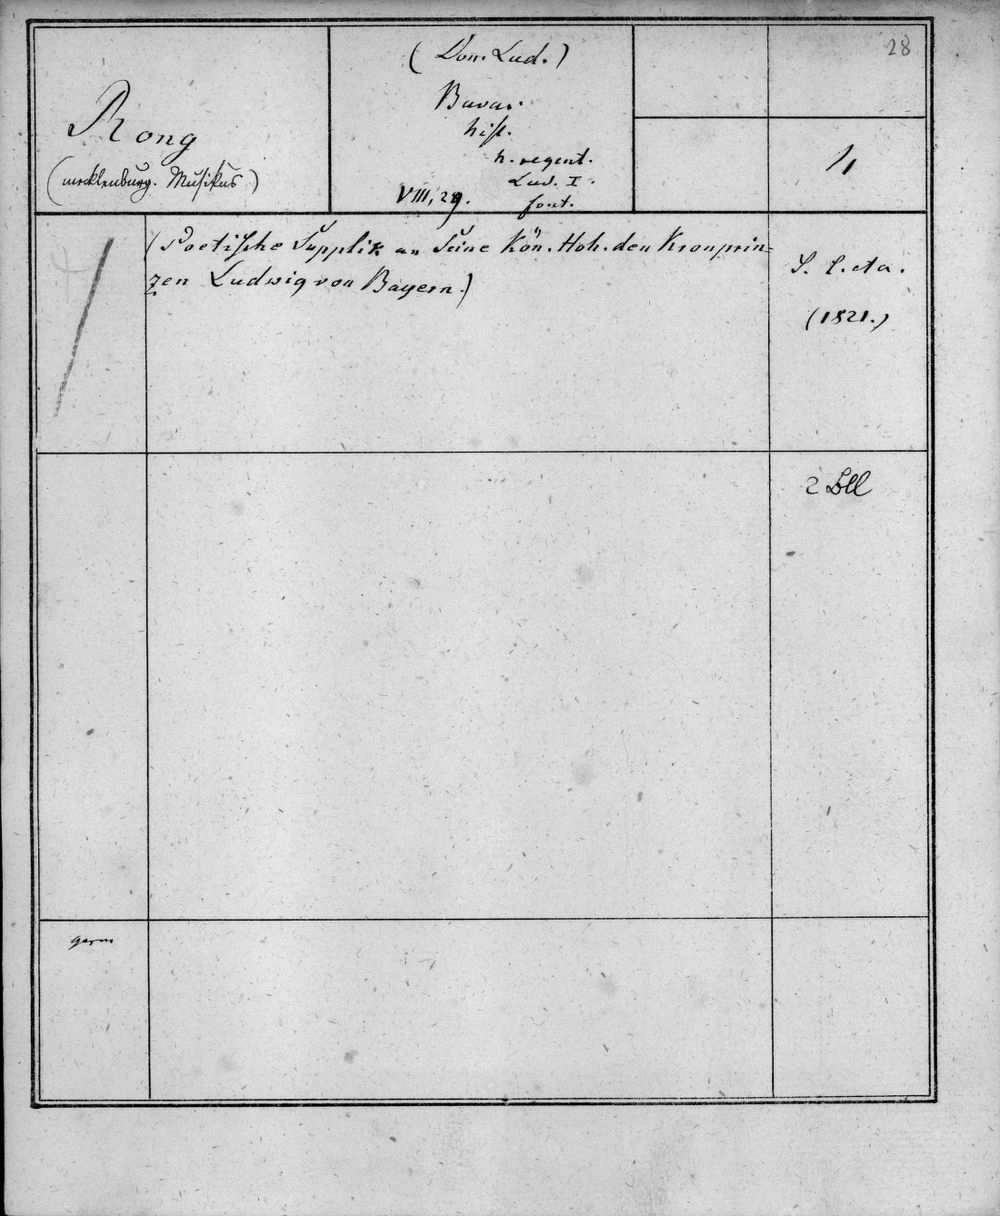 28
(Don. Lud.)
Bavar.
hist.
h. regent.
Lud. I.
font.
VIII, 29.
Rong
(mecklenburg. Musikus)
4
(Poetische Supplik an Seine Kön. Hoh. den Kronprin-
zen Ludwig von Bayern.)
S. l. et a.
(1821.)
2 Bll
germ